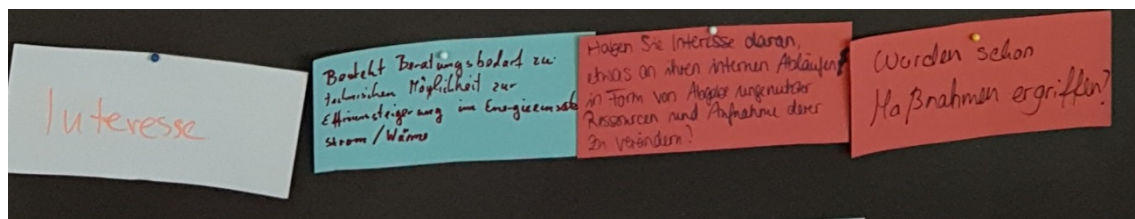 Interesse
Besteht Beratungsbedarf zu
technischen Möglichkeit zur
Effizienzsteigerung im Energieeinsatz
Strom/Wärme
Haben Sie Interesse daran,
etwas an ihren internen Abläufen
in Form von Abgabe ungenutzter
Ressourcen und Aufnahme derer
zu verändern?
Wurden schon
Maßnahmen ergriffen?